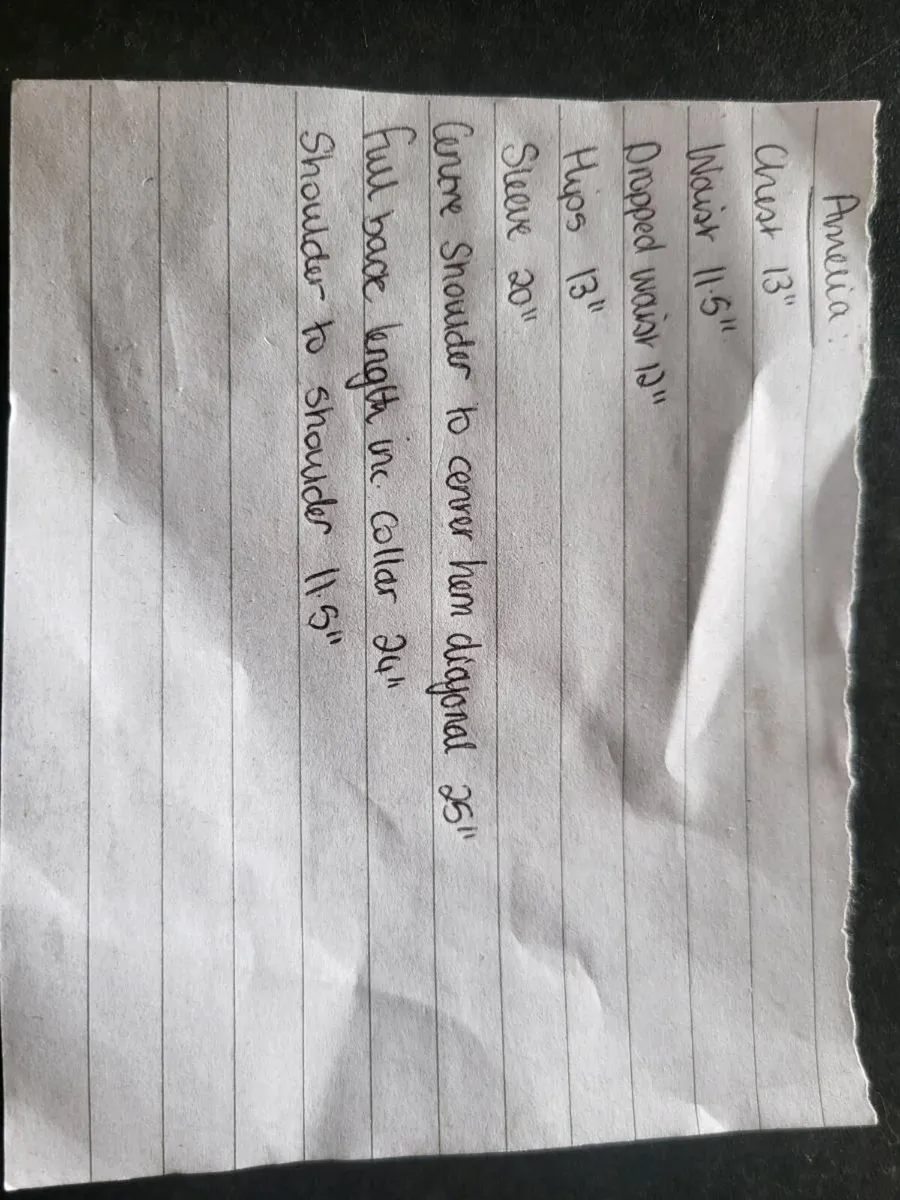 Amelia:
Chest 13"
Waist 11.5".
Dropped waist 12"
Hips 13"
Sleeve 20"
Centre Shoulder to center hem diagonal 25"
Full back length inc. collar 24"
Shoulder to shoulder 11.5"